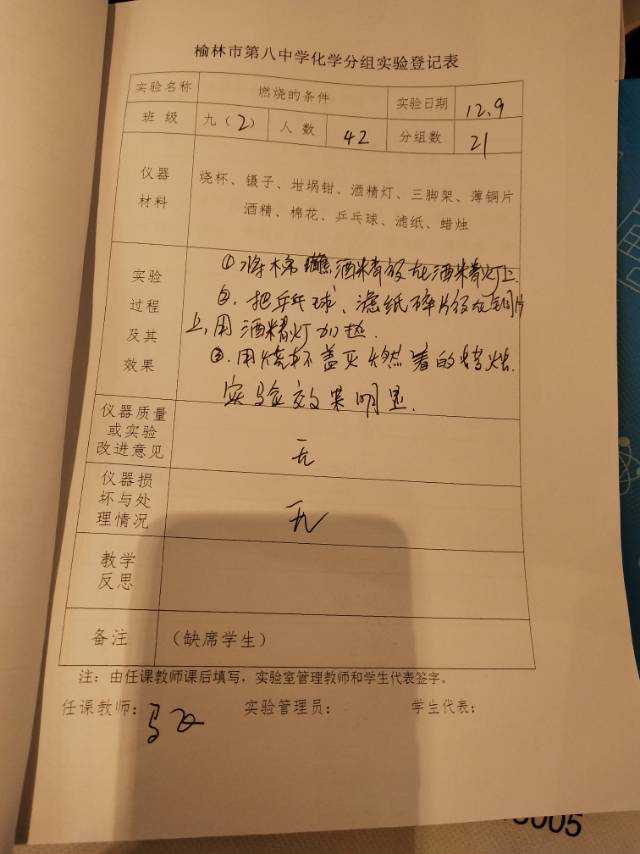 榆林市第八中学化学分组实验登记表
实验名称 燃烧的条件 实验日期 12.9
班级 九（2） 人数 42 分组数 21
仪器材料 烧杯、镊子、坩埚钳、酒精灯、三脚架、薄铜片
酒精、棉花、乒乓球、滤纸、蜡烛
实验过程及其效果 ①将棉 酒精放在酒精灯上
②.把乒乓球、滤纸碎片放在铜片
上,用酒精灯加热.
③.用烧杯盖灭燃着的蜡烛.
实验效果明显.
仪器质量或实验改进意见 无
仪器损坏与处理情况 无
教学反思
备注 （缺席学生）
注：由任课教师课后填写，实验室管理教师和学生代表签字。
任课教师：马 实验管理员： 学生代表：
5005